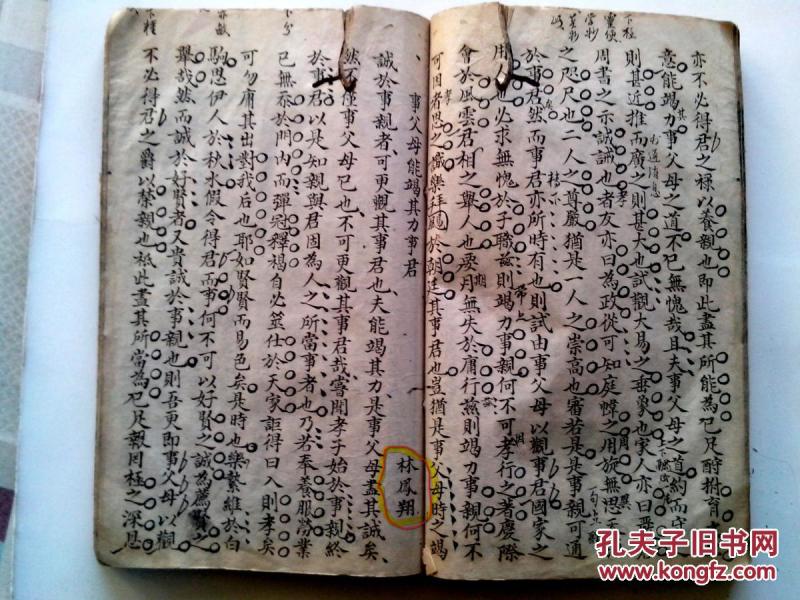 亦不必得君之祿以養親也即此盡其所能為已足酬拊育
意能竭力事父母之道不已無愧哉且夫事父母之道約而
則甚近推而廣之則甚大也試觀大易之垂象也家人亦曰嚴
周書之示誡誡也者友亦曰為政從可知庭幃之用旅無
之咫尺也二人之尊嚴猶是一人之崇高也審若是事親可通
於事君然而事君亦所時有也則試由事父母以觀事君國家之
用人也必求無愧於子職誼則竭力事親何不可孝行之著慶際
會於風雲君相之舉人也要期無失於庸行茲則竭力事親何不
可因者思之讌樂拜颺於朝廷其事君也豈猶是事父母時之竭
事父母能竭其力事君
林鳳翔
誠於事親者可更觀其事君也夫能竭其力是事父母盡其誠矣
然不僅事父母已也不可更觀其事君哉嘗聞孝子始於事親終
於事君以是知親與君固為人之所當事者也乃若奉養服勞業
已無忝於門內而彈冠釋褐自必筮仕於天家詎得曰入則孝矣
可勿庸其出對我后也耶如賢賢而易色矣是時也樂縶維於白
駒思伊人於秋水假令得君而事何不可以好賢之誠為薦賢之
舉哉然而誠於好賢者又貴誠於事親也則吾更即事父母以觀
不必得君之爵以榮親也祗此盡其所當為已足報罔極之深恩
下在
孔夫子旧书网
www.kongfz.com